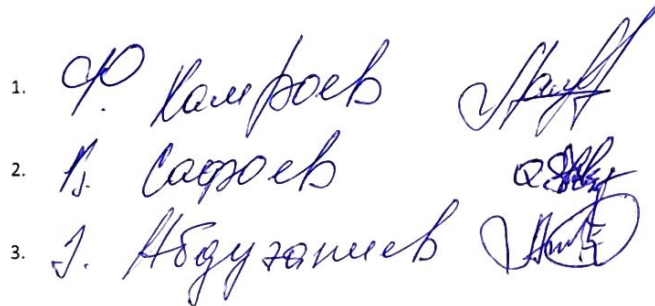 1. Ф. Камроев
2. В. Сафоев
3. З. Абдуганиев